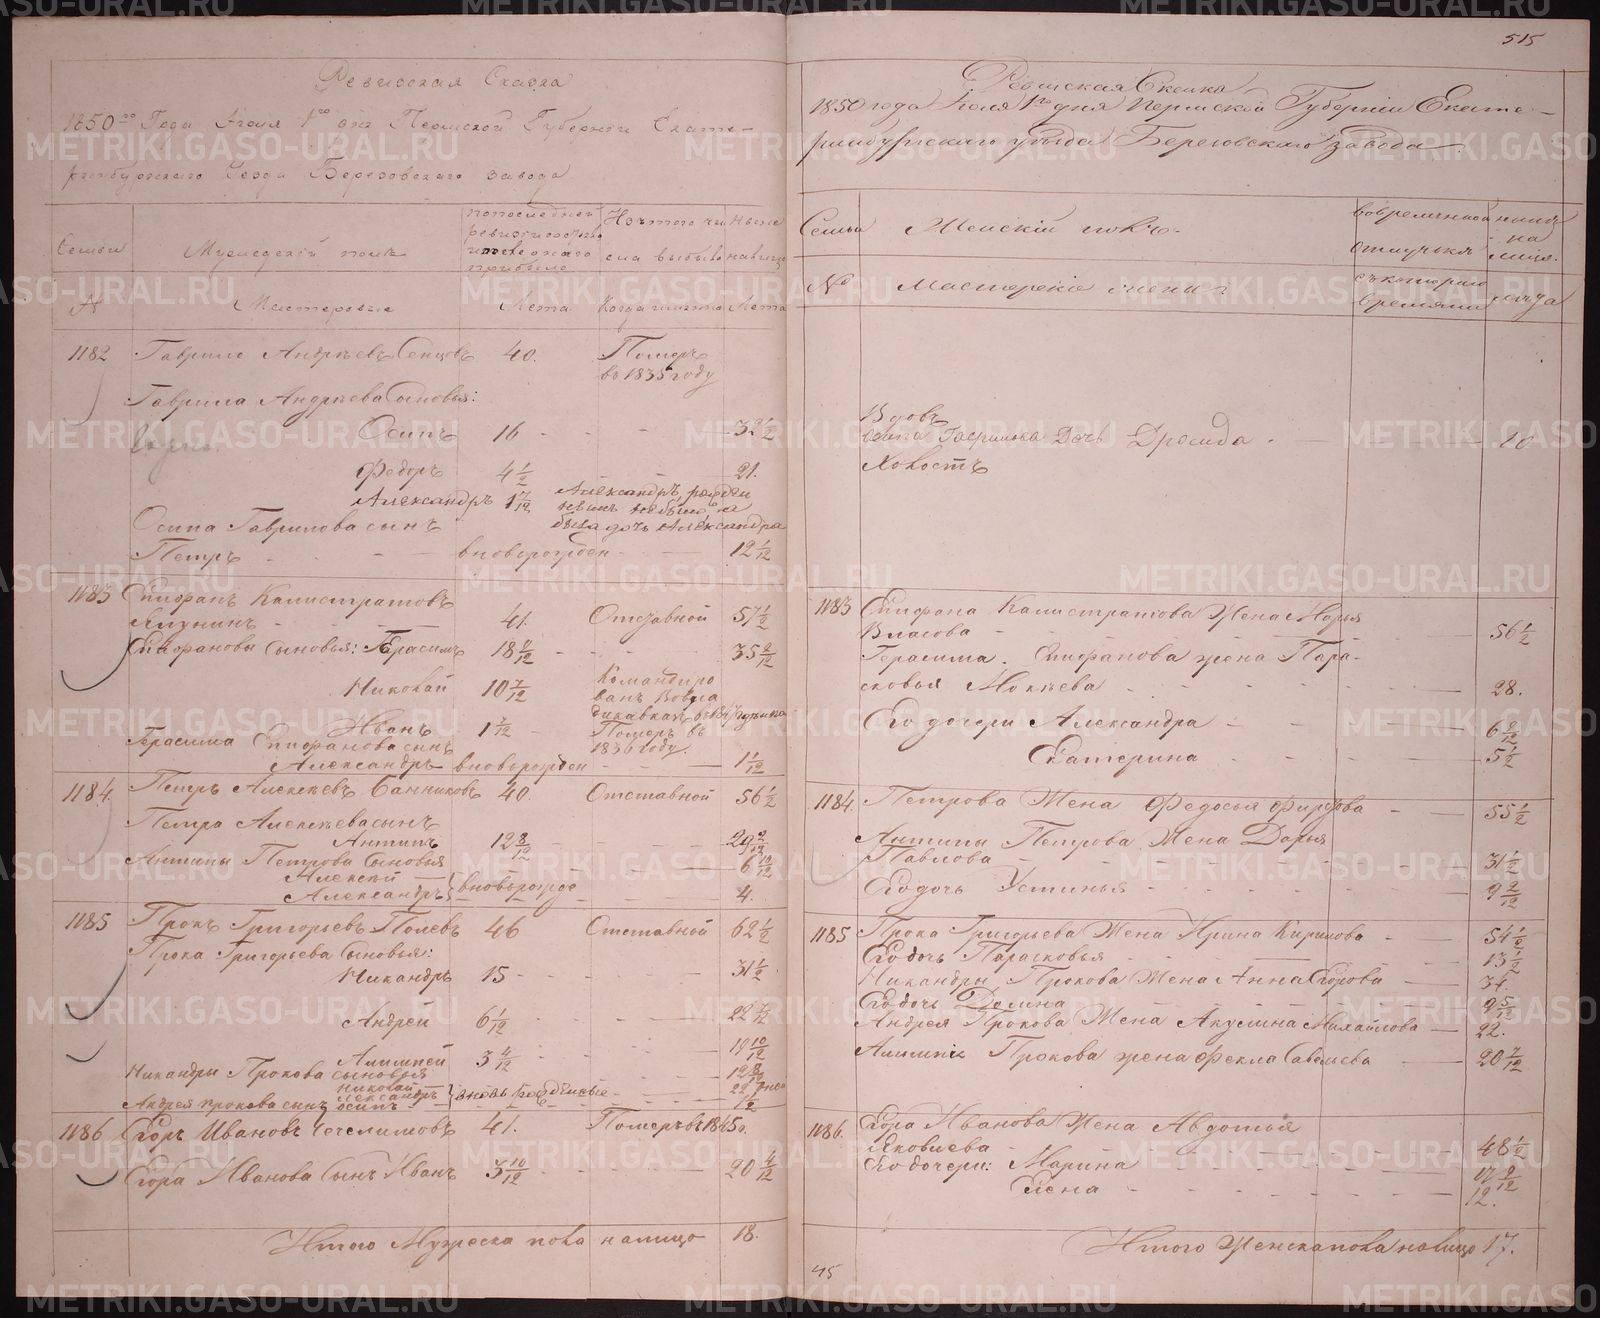 Ревизская Сказка
1850го Года Іюля 1го дня Пермской Губерніи Екате-
ринбургскаго Уезда Березовскаго завода
Семьи
Мужескій полъ
по последней
ревизіи состояло
и после оного
прибыло
Изъ того чи
сла выбыло
Ныне
налицо
№
Мастеровые
Лета
Когда именно
Лета
1182 Гаврило Андреевъ 40. Померъ
въ 1835 году
Гаврила Андреева Сыновья:
Осипъ 16 - - - 32 1/2
Федоръ 4 1/2 - - 21.
Александръ 1 7/12 Александръ рожден
не былъ а
была дочь Александра
Осипа Гаврилова сынъ
Петръ - - - вновьрожден - - 12 1/12
1183 Епифанъ Калистратовъ
Ялунинъ - - 41. Отставной 57 1/2
Епифановы Сыновья: Герасимъ 18 9/12 - - 35 2/12
Николай 10 7/12 Командиро
ванъ
Иванъ 1 1/12 - Померъ въ
1836 году.
Герасима Епифанова сынъ
Александръ вновьрожден - - 1 1/12
1184. Петръ Алексеевъ Банниковъ 40. Отставной 56 1/2
Петра Алексеева сынъ
Антипъ 12 8/12 - - - 29 2/12
Антипы Петрова Сыновья
Алексей - 6 10/12
Александръ вновьрожде - - 4.
1185 Прокъ Григорьевъ Полевъ 46 Отставной 62 1/2
Прока Григорьева Сыновья:
Никандръ 15 - - - 31 1/2
Андрей 6 1/12 - - - 22 7/12
Алимпей 3 4/12 - - - 19 10/12
Никандры Прокова сыновья
Николай - 12
Александръ вновь рожденные - -
Андрея Прокова сынъ Осипъ - 1/2
1186 Егоръ Ивановъ 41. Померъ въ 1845 г.
Егора Иванова Сынъ Иванъ 3 10/12 - - - 20 4/12
Итого Мужеска пола налицо 18.
515
Ревизская Сказка
1850 года Іюля 1го дня Пермской Губерніи Екате-
ринбургскаго уѣзда Березовскаго завода
Семьи
Женскій полъ.
Во временной
отлучке
ныне
на
лицо.
№
Мастерскіе жены
съ котораго
времени
лета
Вдовъ
Осипа Гаврилова Дочь - - 10
Холостъ
1183 Епифана Калистратова Жена Марья
Власова - - - 56 1/2
Герасима Епифанова жена Пара-
сковья Мокеева - - - 28.
Его дочери Александра - - 6 2/12
Екатерина - - 5 1/2
1184. Петрова Жена Федосья - 55 1/2
Антипы Петрова Жена Дарья
Павлова - - - 31 1/2
Его дочь Устинья - - - 9 2/12
1185 Прока Григорьева Жена Ирина Кирилова - 54 1/2
Его дочь Парасковья - - 13 1/2
Никандры Прокова Жена Анна Егорова - 34.
Его дочь - - 9 5/12
Андрея Прокова Жена Акулина Михайлова - 22.
Алимпія Прокова жена Фекла Савельева - 20 7/12
1186. Егора Иванова Жена Авдотья
Яковлева - - - 48 1/2
Его дочери: Марина - - - 17 9/12
Елена - - - 12.
Итого Женска пола налицо 17.
45
METRIKI.GASO-URAL.RU